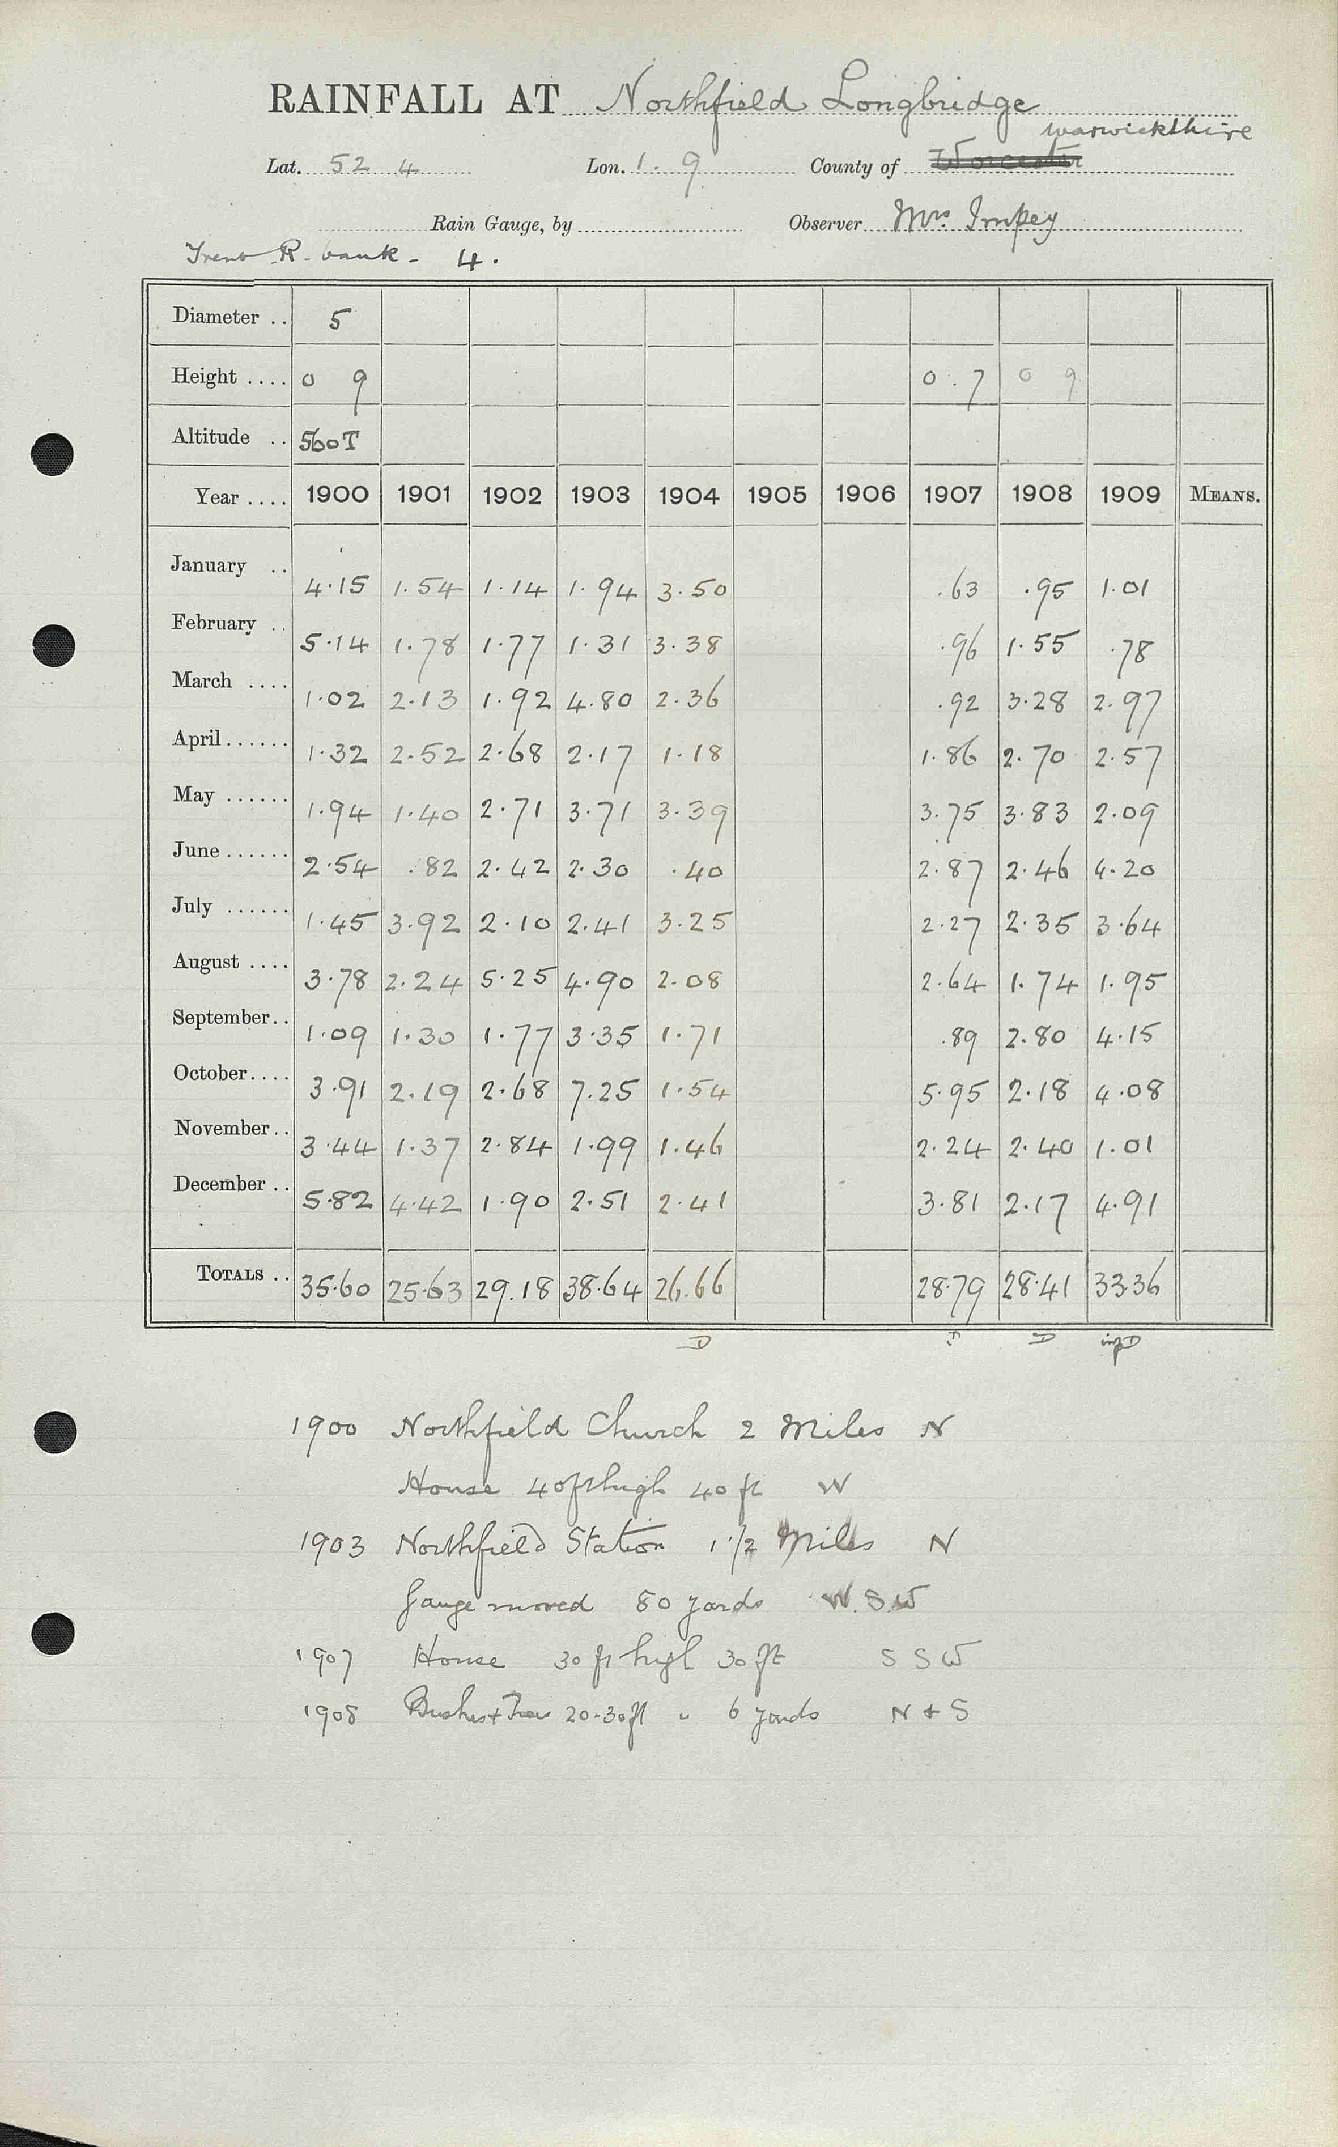 RAINFALL AT Northfield Longbridge
Warwickshire
Lat. 52 4 Lon. 1. 9 County of Worcester
Rain Gauge, by Observer Mrs. Impey
Trent R. bank - 4.
Diameter .. 5
Height .... 0 9 0.7 0 9
Altitude .. 560T
Year .... 1900 1901 1902 1903 1904 1905 1906 1907 1908 1909 MEANS.
January .. 4.15 1.54 1.14 1.94 3.50 .63 .95 1.01
February .. 5.14 1.78 1.77 1.31 3.38 .96 1.55 .78
March .... 1.02 2.13 1.92 4.80 2.36 .92 3.28 2.97
April...... 1.32 2.52 2.68 2.17 1.18 1.86 2.70 2.57
May ...... 1.94 1.40 2.71 3.71 3.39 3.75 3.83 2.09
June...... 2.54 .82 2.42 2.30 .40 2.87 2.46 4.20
July ...... 1.45 3.92 2.10 2.41 3.25 2.27 2.35 3.64
August .... 3.78 2.24 5.25 4.90 2.08 2.64 1.74 1.95
September.. 1.09 1.30 1.77 3.35 1.71 .89 2.80 4.15
October.... 3.91 2.19 2.68 7.25 1.54 5.95 2.18 4.08
November.. 3.44 1.37 2.84 1.99 1.46 2.24 2.40 1.01
December .. 5.82 4.42 1.90 2.51 2.41 3.81 2.17 4.91
TOTALS .. 35.60 25.63 29.18 38.64 26.66 28.79 28.41 33.36
D D
1900 Northfield Church 2 Miles N
House 40ft high 40 ft W
1903 Northfield Station 1 1/2 Miles N
Gauge moved 80 yards W.S.W
1907 House 30 ft high 30 ft S S W
1908 Bushes + Trees 20-30ft " 6 yards N + S